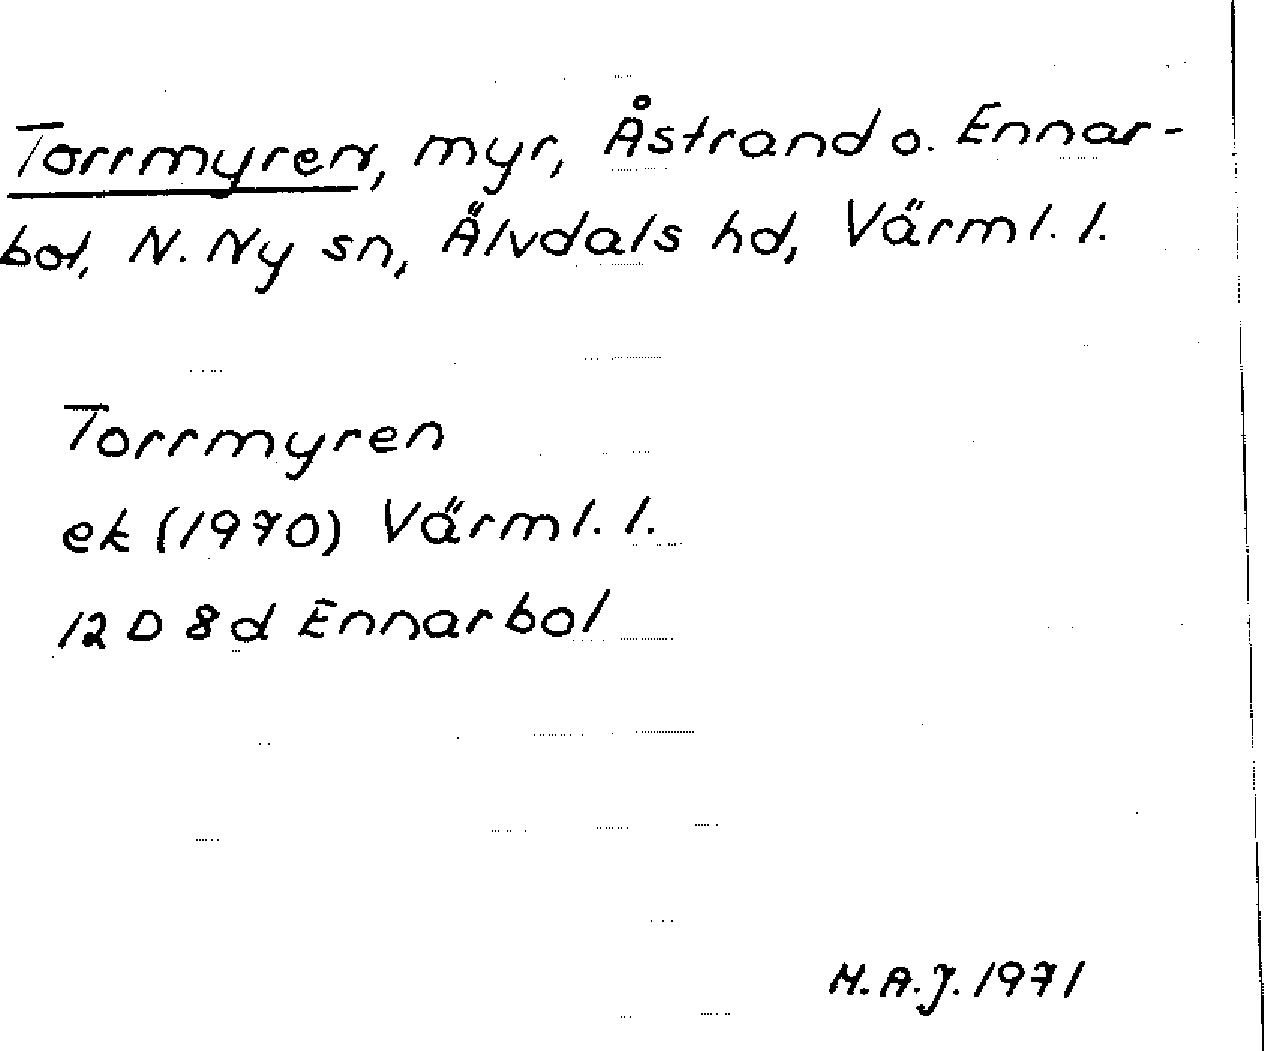 Torrmyren, myr, Åstrand o. Ennar-
bol, N. Ny sn, Älvdals hd, Värml. l.
Torrmyren
ek (1970) Värml. l.
12 D 8 d Ennarbol
H. A. J. 1971